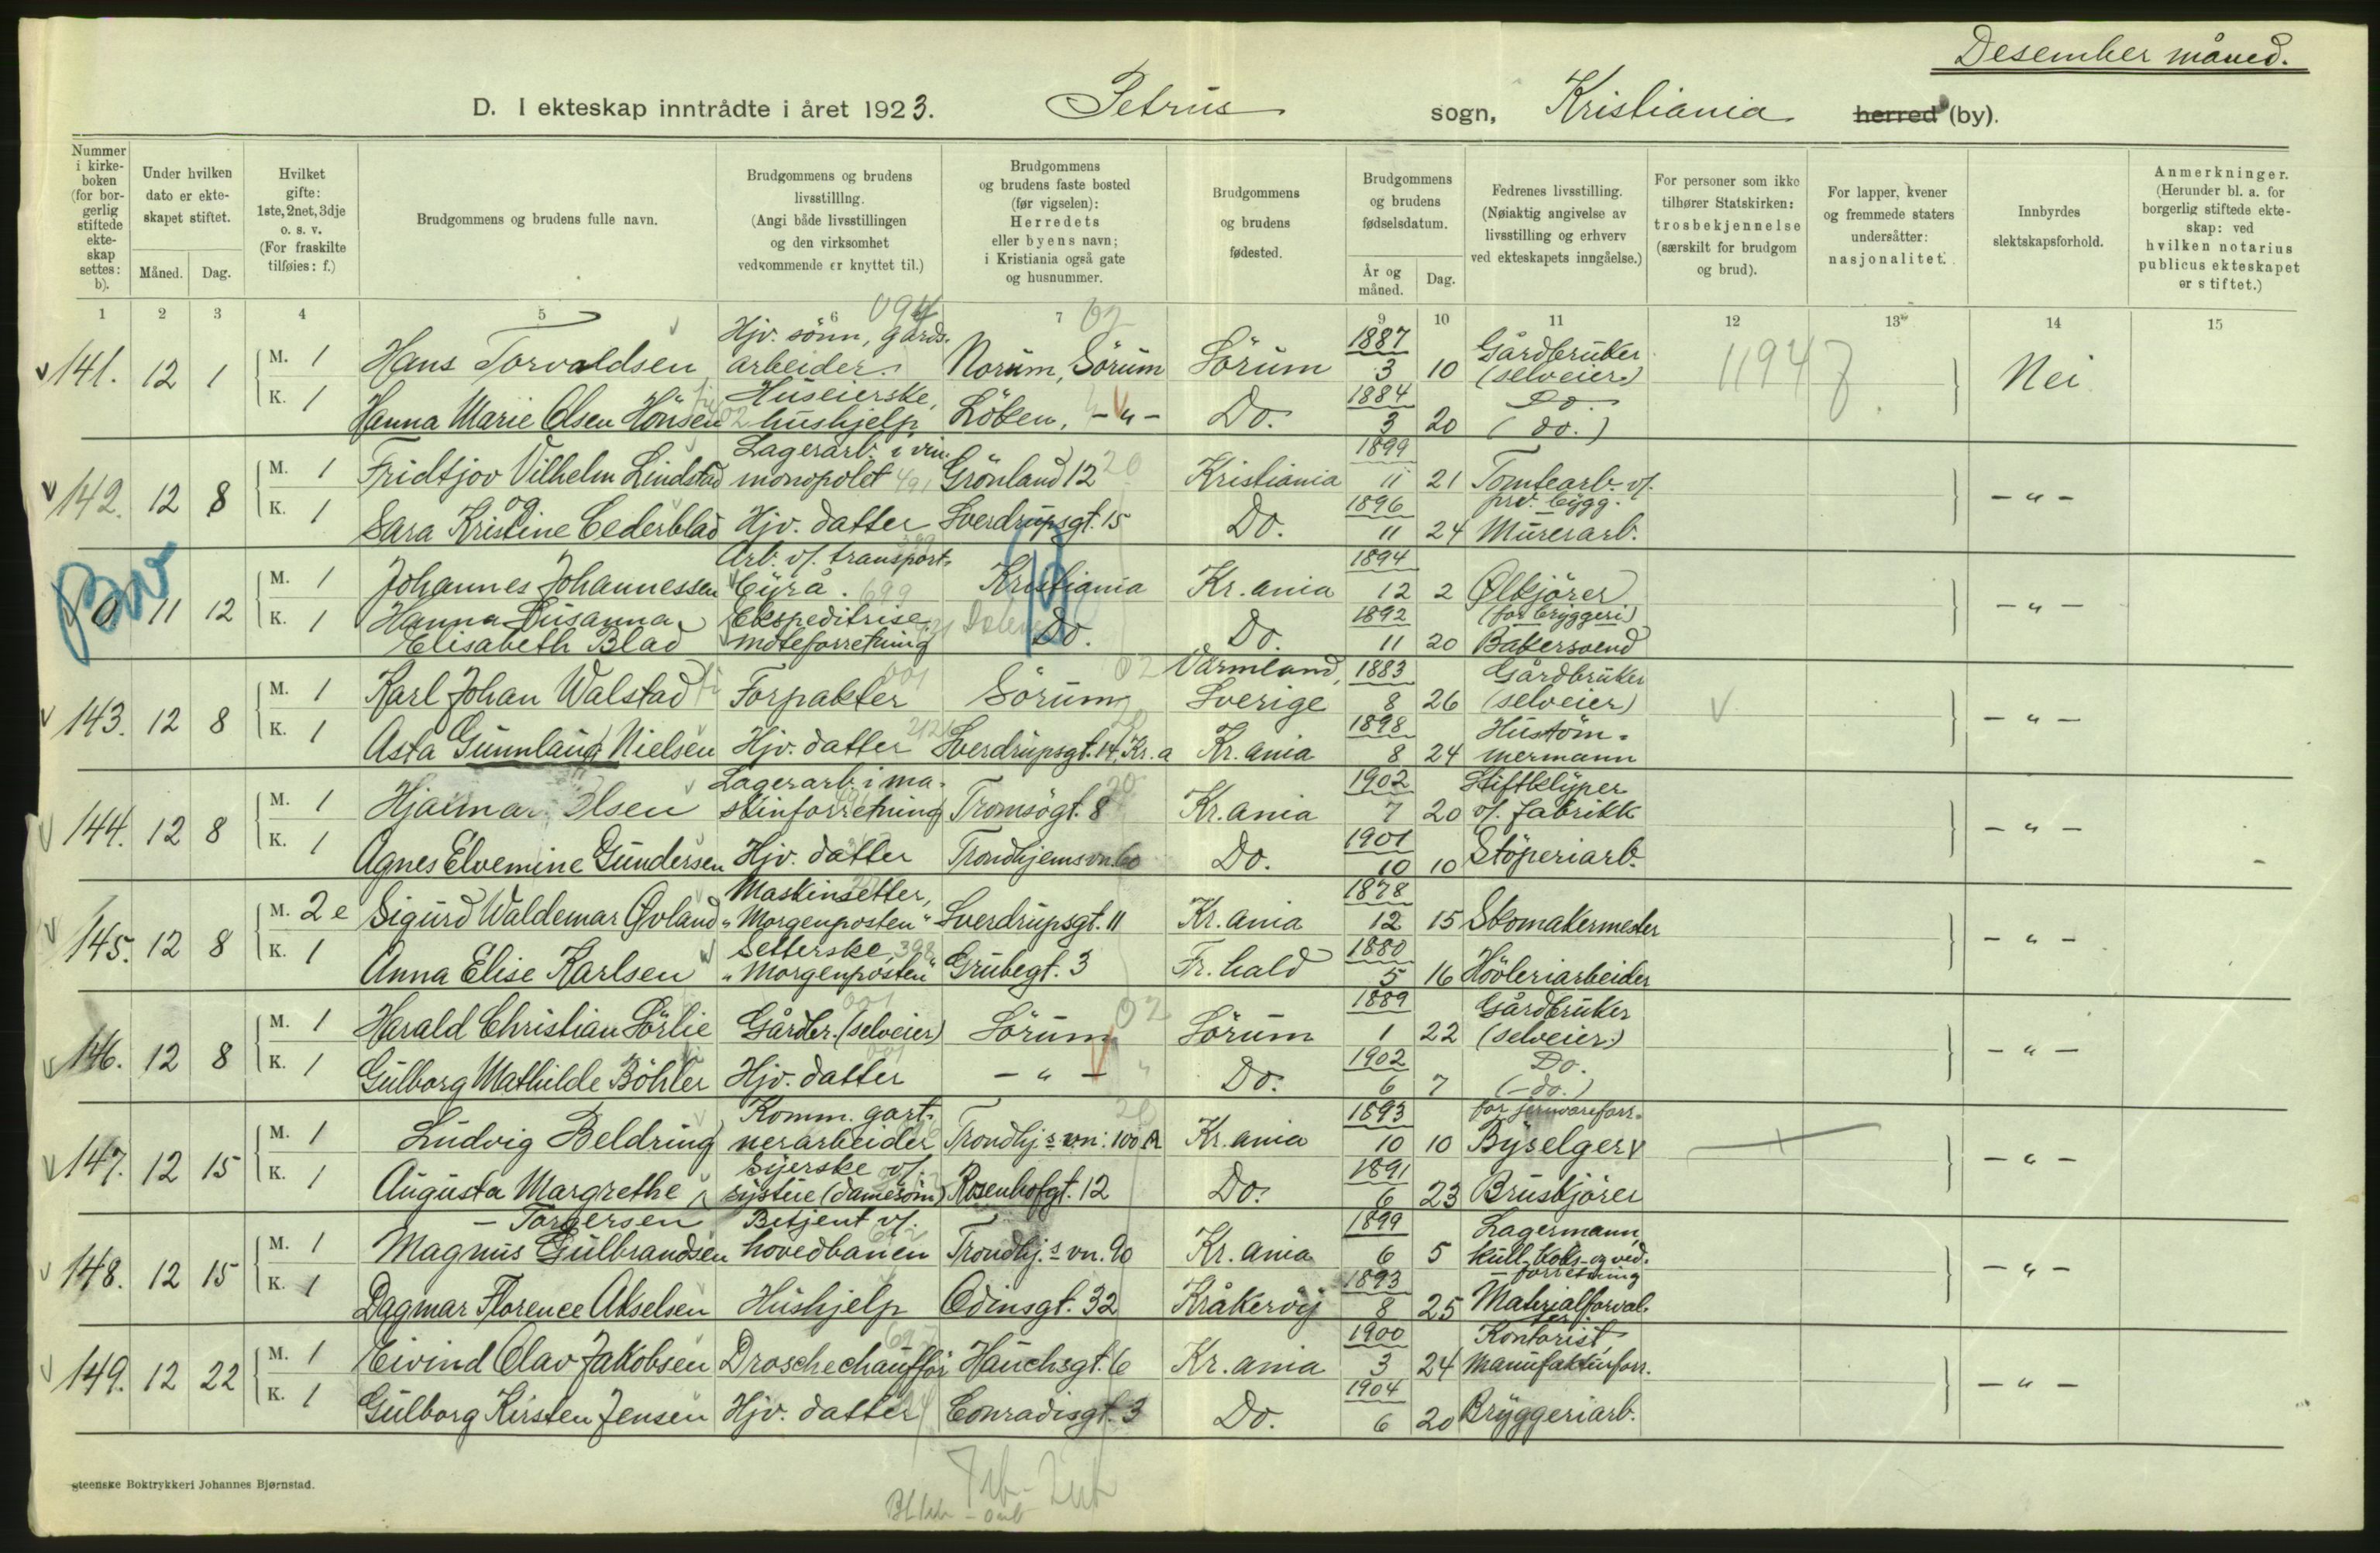 Desember måned.
D. I ekteskap inntrådte i året 1923. Petrus sogn, Kristiania herred (by).
Nummer i kirkeboken (for borgerlig stiftede ekteskap settes: b).
Under hvilken dato er ekteskapet stiftet.
Måned. Dag.
Hvilket gifte: 1ste, 2net, 3dje o. s. v. (For fraskilte tilføies: f.)
Brudgommens og brudens fulle navn.
Brudgommens og brudens livsstilling. (Angi både livsstillingen og den virksomhet vedkommende er knyttet til.)
Brudgommens og brudens faste bosted (før vigselen): Herredets eller byens navn; i Kristiania også gate og husnummer.
Brudgommens og brudens fødested.
Brudgommens og brudens fødselsdatum.
År og måned. Dag.
Fedrenes livsstilling. (Nøiaktig angivelse av livsstilling og erhverv ved ekteskapets inngåelse.)
For personer som ikke tilhører Statskirken: trosbekjennelse (særskilt for brudgom og brud).
For lapper, kvener og fremmede staters undersåtter: nasjonalitet.
Innbyrdes slektskapsforhold.
Anmerkninger. (Herunder bl. a. for borgerlig stiftede ekteskap: ved hvilken notarius publicus ekteskapet er stiftet.)
1 2 3 4 5 6 7 9 10 11 12 13 14 15
141. 12 1 M. 1 Hans Torvaldsen Hjv. sönn, gårds-arbeider. Norum, Sörum Sörum 1887 3 10 Gårdbruker (selveier) 11947 Nei
K. 1 Hanna Marie Olsen Hönsen Huseierske, hushjelp Löken, - " - Do. 1884 3 20 Do (do.)
142. 12 8 M. 1 Fridtjov Vilhelm Lindstad Lagerarb. i vin-monopolet 491 Grönland 12 20 Kristiania 1899 11 21 Tomtearb. v/. prv. bygg. - " -
K. 1 og Sara Kristine Cederblad Hjv. datter Sverdrupsgt. 15 Do. 1896 11 24 Murerarb.
Bw 0 11 12 M. 1 Johannes Johannessen Arb. v/. transport-byrå. 699 Kristiania Kr.ania 1894 12 2 Ølkjörer (for bryggeri) - " -
K. 1 Hanna Susanna Elisabeth Blad Ekspeditrise moteforretning Do. Do. 1892 11 20 Bakersvend
143. 12 8 M. 1 Karl Johan Walstad Forpakter 001 Sörum 02 Värmland, Sverige 1883 8 26 Gårdbruker (selveier) - " -
K. 1 Asta Gunnlaug Nielsen Hjv. datter Sverdrupsgt. 14, Kr.a Kr.ania 1898 8 24 Hustöm-mermann
144. 12 8 M. 1 Hjalmar Olsen Lagerarb. i ma-skinforretning Tromsögt. 8 Kr.ania 1902 7 20 Stiftklyper v/. fabrikk - " -
K. 1 Agnes Elvemine Gundersen Hjv. datter Trondhjemsvn. 60 Do. 1901 10 10 Stöperiarb.
145. 12 8 M. 2e Sigurd Waldemar Øvland Maskinsetter, "Morgenposten" Sverdrupsgt. 11 Kr.ania 1878 12 15 Skomakermester - " -
K. 1 Anna Elise Karlsen Setterske, 398 "Morgenposten" Grubegt. 3 Fr. hald 1880 5 16 Hövleriarbeider
146. 12 8 M. 1 Harald Christian Sörlie Gårdbr. (selveier) 001 Sörum 02 Sörum 1889 1 22 Gårdbruker (selveier) - " -
K. 1 Gulborg Mathilde Böhler Hjv. datter - " - Do. 1902 6 7 Do. (-do.)
147. 12 15 M. 1 Ludvig Beldring Komm. gart-nerarbeider Trondhj.s vn: 100 A Kr.ania 1893 10 10 for jernvareforr. Byselger - " -
K. 1 Augusta Margrethe - Torgersen Syerske v/. systue (damesöm) Rosenhofgt. 12 Do. 1891 6 23 Bruskjörer
148. 12 15 M. 1 Magnus Gulbrandsen Betjent v/. hovedbanen Trondhj.s vn. 90 Kr.ania 1899 6 5 Lagermann, kull-koks- og ved-forretning - " -
K. 1 Dagmar Florence Akselsen Hushjelp Odinsgt. 32 Kråkeröy 1893 8 25 Materialforval-ter.
149. 12 22 M. 1 Eivind Olav Jakobsen Droschechaufför Hauchsgt. 6 Kr.ania 1900 3 24 Kontorist, manufakturforr. - " -
K. 1 Gulborg Kirsten Jensen Hjv. datter Conradisgt. 3 Do. 1904 6 20 Bryggeriarb.
steenske Boktrykkeri Johannes Bjørnstad.